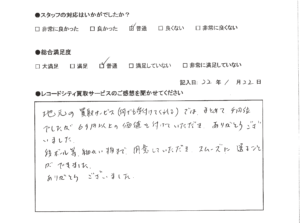 ●スタッフの対応はいかがでしたか?
□非常に良かった □良かった ☑普通 □良くない □非常に良くない
●総合満足度
□大満足 □満足 ☑普通 □満足していない □非常に満足していない
記入日 22 年 / 月 22 日
●レコードシティ買取サービスのご感想を聞かせてください
地元の買取サービス(何でも受付けてくれる)では、まとめて
でしたが 以上の価値を付けていただき ありがとうござ
いました
段ボール等、細めに 用意していただき スムーズに送ること
ができました。
ありがとうございました